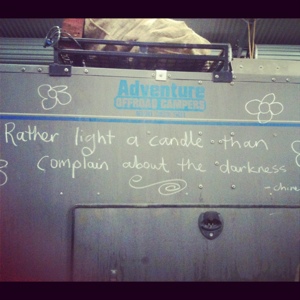 Adventure
OFFROAD CAMPERS
Rather light a candle than
complain about the darkness